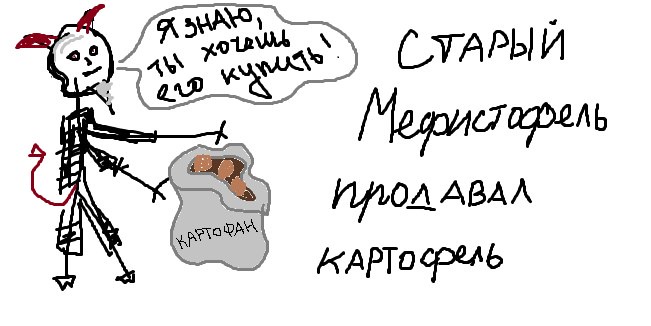 Я ЗНАЮ,
ТЫ хочешь
его купить!
КАРТОФАН
СТАРЫЙ
Мефистофель
продавал
картофель